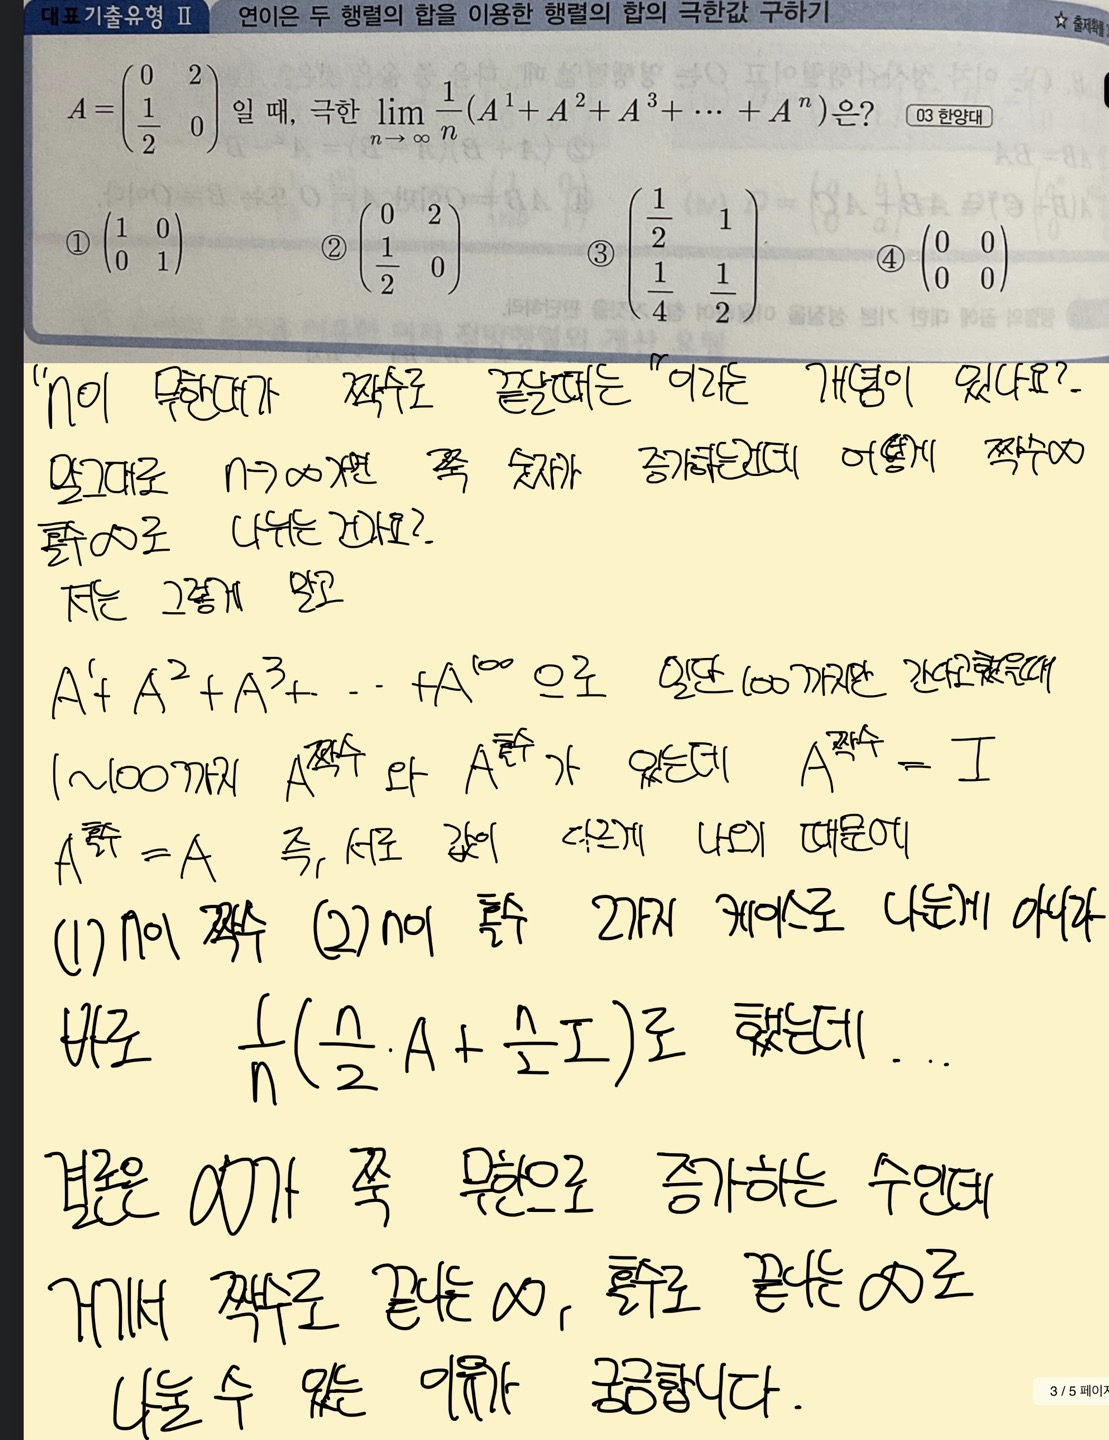 대표기출유형 Ⅱ 연이은 두 행렬의 합을 이용한 행렬의 합의 극한값 구하기 ☆ 출제확률
A = (0 2; 1/2 0) 일 때, 극한 lim n→∞ 1/n (A¹ + A² + A³ + ⋯ + Aⁿ)은? 03 한양대
① (1 0; 0 1) ② (0 2; 1/2 0) ③ (1/2 1; 1/4 1/2) ④ (0 0; 0 0)
"n이 무한대가 짝수로 끝날때는" 이라는 개념이 있나요?
말그대로 n→∞가면 쭉 숫자가 증가하는건데 어떻게 짝수∞
홀수∞로 나뉘는 건가요?
저는 그렇게 말고
A¹+A²+A³+ ⋯ +A¹⁰⁰ 으로 일단 100까지만 간다고했을때
1~100까지 A^짝수 와 A^홀수 가 있는데 A^짝수 = I
A^홀수 = A 즉, 서로 값이 다르게 나오기 때문에
(1) n이 짝수 (2) n이 홀수 2가지 케이스로 나눈게 아니라
바로 1/n (n/2 · A + n/2 I)로 했는데...
결론은 ∞가 쭉 무한으로 증가하는 수인데
거기서 짝수로 끝나는 ∞, 홀수로 끝나는 ∞로
나눌 수 있는 이유가 궁금합니다.
3 / 5 페이지